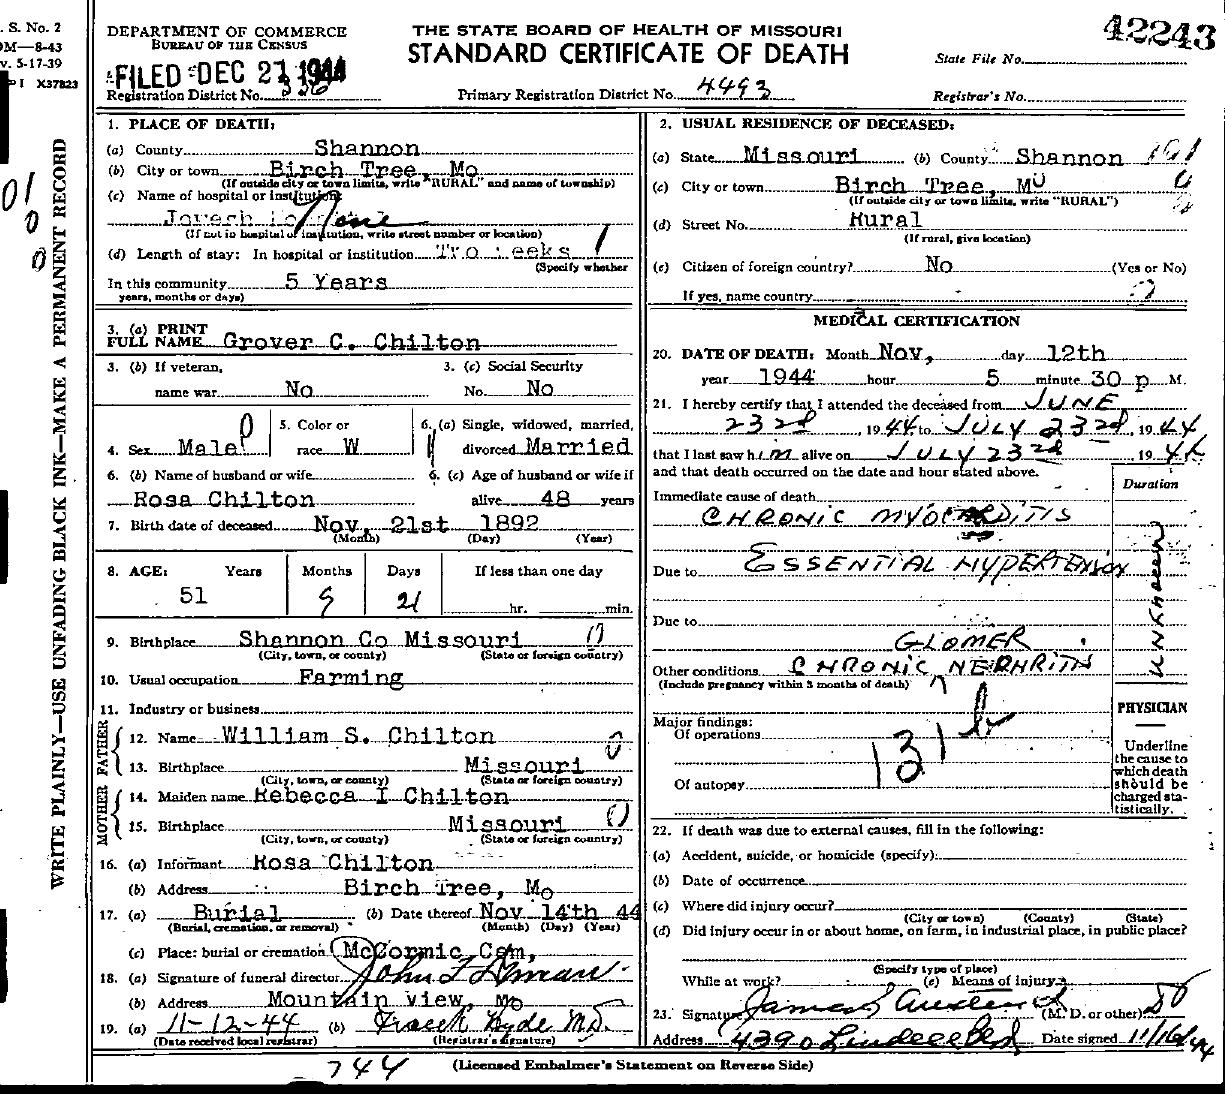 . S. No. 2
OM—8-43
v. 5-17-39
P I X37823
WRITE PLAINLY—USE UNFADING BLACK INK—MAKE A PERMANENT RECORD
DEPARTMENT OF COMMERCE
BUREAU OF THE CENSUS
FILED DEC 21 1944
Registration District No. 336
THE STATE BOARD OF HEALTH OF MISSOURI
STANDARD CERTIFICATE OF DEATH
Primary Registration District No. 4493
42243
State File No.
Registrar's No.
1. PLACE OF DEATH:
(a) County Shannon
(b) City or town Birch Tree, Mo
(If outside city or town limits, write "RURAL" and name of township)
(c) Name of hospital or institution:
None
(If not in hospital or institution, write street number or location)
(d) Length of stay: In hospital or institution
(Specify whether
In this community 5 Years
years, months or days)
3. (a) PRINT
FULL NAME Grover C. Chilton
3. (b) If veteran,
name war No
3. (c) Social Security
No. No
4. Sex Male
5. Color or
race W
6. (a) Single, widowed, married,
divorced Married
6. (b) Name of husband or wife
Rosa Chilton
6. (c) Age of husband or wife if
alive 48 years
7. Birth date of deceased Nov, 21st 1892
(Month) (Day) (Year)
8. AGE: Years Months Days If less than one day
51 9 21 hr. min.
9. Birthplace Shannon Co Missouri
(City, town, or county) (State or foreign country)
10. Usual occupation Farming
11. Industry or business
FATHER
12. Name William S. Chilton
13. Birthplace Missouri
(City, town, or county) (State or foreign country)
MOTHER
14. Maiden name Rebecca I Chilton
15. Birthplace Missouri
(City, town, or county) (State or foreign country)
16. (a) Informant Rosa Chilton
(b) Address Birch Tree, Mo
17. (a) Burial (b) Date thereof Nov 14th 44
(Burial, cremation, or removal) (Month) (Day) (Year)
(c) Place: burial or cremation McCormic Cem,
18. (a) Signature of funeral director John F
(b) Address Mountain view, Mo
19. (a) 11-12-44 (b) Frank Hyde M.D.
(Date received local registrar) (Registrar's signature)
2. USUAL RESIDENCE OF DECEASED:
(a) State Missouri (b) County Shannon
(c) City or town Birch Tree, Mo
(If outside city or town limits, write "RURAL")
(d) Street No. Rural
(If rural, give location)
(e) Citizen of foreign country? No (Yes or No)
If yes, name country
MEDICAL CERTIFICATION
20. DATE OF DEATH: Month Nov, day 12th
year 1944 hour 5 minute 30 p M.
21. I hereby certify that I attended the deceased from JUNE
23rd, 1944 to JULY 23rd, 1944
that I last saw him alive on JULY 23rd 1944
and that death occurred on the date and hour stated above.
Duration
Immediate cause of death
CHRONIC MYOCARDITIS
Due to ESSENTIAL HYPERTENSION
UNKNOWN
Due to
GLOMER
Other conditions CHRONIC NEPHRITIS
(Include pregnancy within 3 months of death)
Major findings:
Of operations
131 b
Of autopsy
PHYSICIAN
Underline
the cause to
which death
should be
charged sta-
tistically.
22. If death was due to external causes, fill in the following:
(a) Accident, suicide, or homicide (specify):
(b) Date of occurrence
(c) Where did injury occur?
(City or town) (County) (State)
(d) Did injury occur in or about home, on farm, in industrial place, in public place?
(Specify type of place)
While at work? (e) Means of injury
23. Signature James Austin (M. D. or other)
Address 4390 Lindell Blvd Date signed 11/16/44
744
(Licensed Embalmer's Statement on Reverse Side)